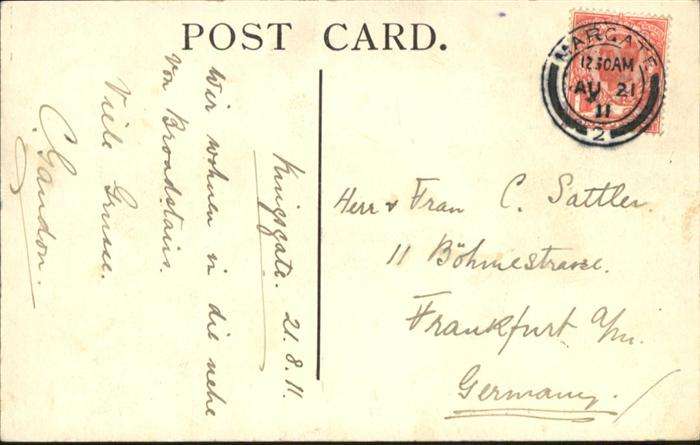 POST CARD.
MARGATE
12.30AM
AU 21
11
2
Kingsgate. 21.8.11.
Wir wohnen in die nehe
von Broadstairs.
Viele Grusse.
C. Gandon.
Herr & Frau C. Sattler.
11 Böhmestrasse.
Frankfurt a/m.
Germany.